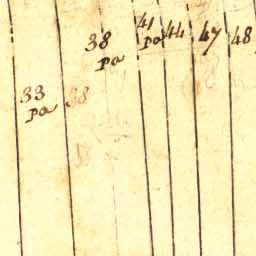 41
38 pa 44 47 48
pa
33 38
pa